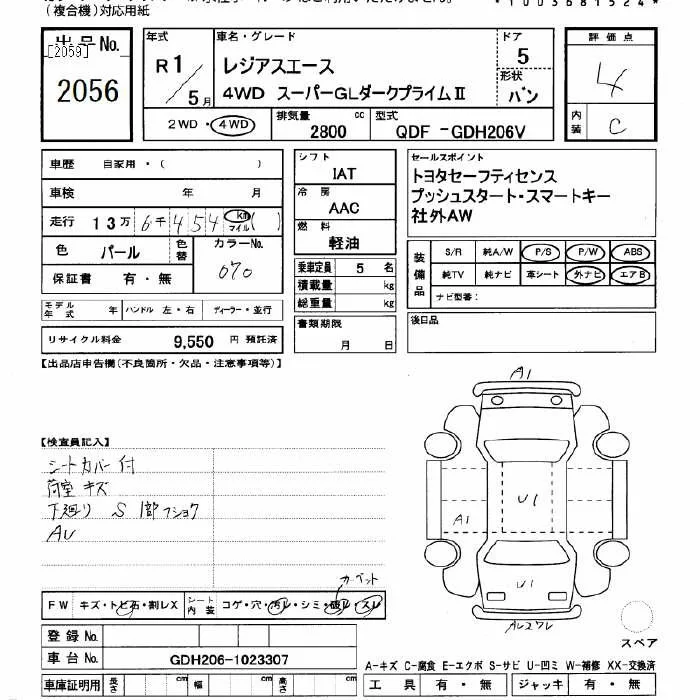 (複合機)対応用紙
*1003681524*
出品No.
[2059]
2056
年式
R1/5月
車名・グレード
レジアスエース
4WD スーパーGLダークプライムⅡ
ドア
5
形状
バン
2WD・4WD
排気量
2800 cc
型式
QDF-GDH206V
評価点
4
内装
C
車歴 自家用・( )
車検 年 月
走行 13万 6千 454 km マイル ( )
色 パール
色替
カラーNo.
070
保証書 有・無
モデル年式 年
ハンドル 左・右
ディーラー・並行
リサイクル料金 9,550 円 預託済
シフト
IAT
冷房
AAC
燃料
軽油
乗車定員 5 名
積載量 kg
総重量 kg
書類期限
月 日
セールスポイント
トヨタセーフティセンス
プッシュスタート・スマートキー
社外AW
装備品
S/R 純A/W P/S P/W ABS
純TV 純ナビ 革シート 外ナビ エアB
ナビ型番:
後日品
【出品店申告欄(不良箇所・欠品・注意事項等)】
【検査員記入】
シートカバー付
荷室キズ
下廻り S 1部フショク
AU
カーペット
FW キズ・トビ石・割レX
シート内装 コゲ・穴・汚レ・シミ・破レ・スレ
登録No.
車台No. GDH206-1023307
車庫証明用 長さ cm 幅 cm 高さ cm
A1
U1
A1
U1
AU2ワレ
スペア
A-キズ C-腐食 E-エクボ S-サビ U-凹ミ W-補修 XX-交換済
工具 有・無 ジャッキ 有・無